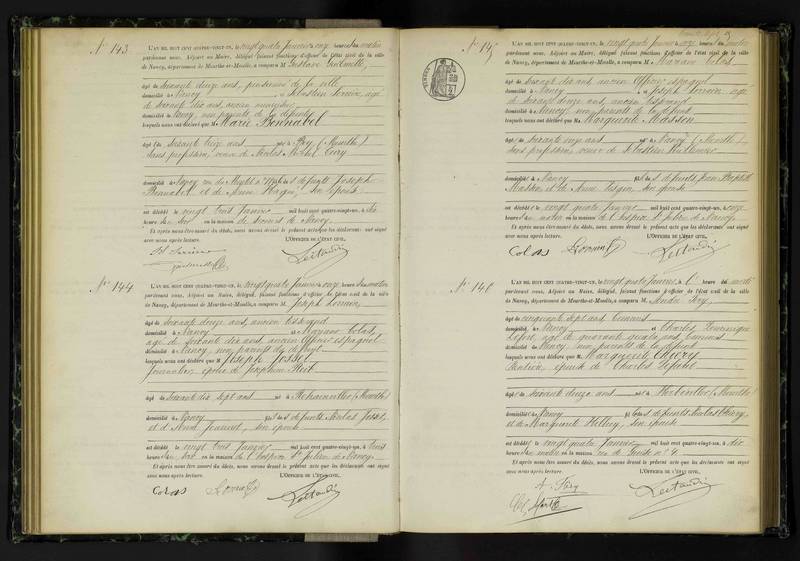 N° 143
L'AN MIL HUIT CENT QUATRE-VINGT-UN, le vingt quatre Janvier à onze heures du matin
pardevant nous, Adjoint au Maire, délégué, faisant fonctions d'officier de l'état civil de la ville
de Nancy, département de Meurthe-et-Moselle, a comparu M Gustave
âgé de soixante douze ans, de la ville
domicilié à Nancy et Sébastien Lorrain, âgé
de soixante dix ans, ancien
domicilié à Nancy, non parents de la défunte
lesquels nous ont déclaré que M Marie Bennabel
âgé de soixante treize ans né à (Meurthe)
sans profession, veuve de Nicolas
domicilié à Nancy, rue fille des défunts Joseph
Bennabel et de Anne son épouse
est décédé le vingt trois Janvier mil huit cent quatre-vingt-un, à dix
heures du soir en la maison de secours de Nancy.
Et après nous être assuré du décès, nous avons dressé le présent acte que les déclarants ont signé
avec nous après lecture. L'OFFICIER DE L'ÉTAT CIVIL,
N° 144
L'AN MIL HUIT CENT QUATRE-VINGT-UN, le vingt quatre Janvier à onze heures du matin
pardevant nous, Adjoint au Maire, délégué, faisant fonctions d'officier de l'état civil de la ville
de Nancy, département de Meurthe-et-Moselle, a comparu M. Joseph Lorrain,
âgé de soixante douze ans, ancien tisserand
domicilié à Nancy et Mariano Colas,
âgé de soixante dix ans, ancien officier espagnol
domicilié à Nancy, non parents du défunt
lesquels nous ont déclaré que M Joseph Jossel
Journalier, époux de Joséphine
âgé de soixante dix sept ans né à Rehainviller (Meurthe)
domicilié à Nancy fils des défunts Nicolas Jossel
et d'Anne son épouse
est décédé le vingt trois Janvier mil huit cent quatre-vingt-un, à trois
heures du soir en la maison de l'hospice St Julien de Nancy.
Et après nous être assuré du décès, nous avons dressé le présent acte que les déclarants ont signé
avec nous après lecture. L'OFFICIER DE L'ÉTAT CIVIL,
Colas Lorrain
N° 145
L'AN MIL HUIT CENT QUATRE-VINGT-UN, le vingt quatre Janvier à onze heures du matin
pardevant nous, Adjoint au Maire, délégué, faisant fonctions d'officier de l'état civil de la ville
de Nancy, département de Meurthe-et-Moselle, a comparu M. Mariano Colas,
âgé de soixante dix ans, ancien Officier espagnol
domicilié à Nancy et Joseph Lorrain, âgé
de soixante douze ans, ancien tisserand
domicilié à Nancy, non parents de la défunte
lesquels nous ont déclaré que M Marguerite Masson
âgé de soixante onze ans né à Nancy (Meurthe)
sans profession, veuve de Sébastien
domicilié à Nancy fille des défunts Jean Baptiste
Masson et de Anne son épouse
est décédé le vingt quatre Janvier mil huit cent quatre-vingt-un, à onze
heures du matin en la maison de l'hospice St Julien de Nancy.
Et après nous être assuré du décès, nous avons dressé le présent acte que les déclarants ont signé
avec nous après lecture. L'OFFICIER DE L'ÉTAT CIVIL,
Colas Lorrain
N° 146
L'AN MIL HUIT CENT QUATRE-VINGT-UN, le vingt quatre Janvier, à heure du
pardevant nous, Adjoint au Maire, délégué, faisant fonctions d'officier de l'état civil de la ville
de Nancy, département de Meurthe-et-Moselle, a comparu M. André
âgé de cinquante sept ans, Commis
domicilié à Nancy et Charles Dominique
Lefort, âgé de quarante quatre ans, Commis
domicilié à Nancy, non parents de la défunte
lesquels nous ont déclaré que M Marguerite Thiéry
Rentière, épouse de Charles
âgé de soixante douze ans né à Herbéviller (Meurthe)
domicilié à Nancy fille des défunts Nicolas Thiéry
et de Marguerite son épouse
est décédé le vingt quatre Janvier mil huit cent quatre-vingt-un, à dix
heures du matin en la maison rue de Guise n° 4
Et après nous être assuré du décès, nous avons dressé le présent acte que les déclarants ont signé
avec nous après lecture. L'OFFICIER DE L'ÉTAT CIVIL,